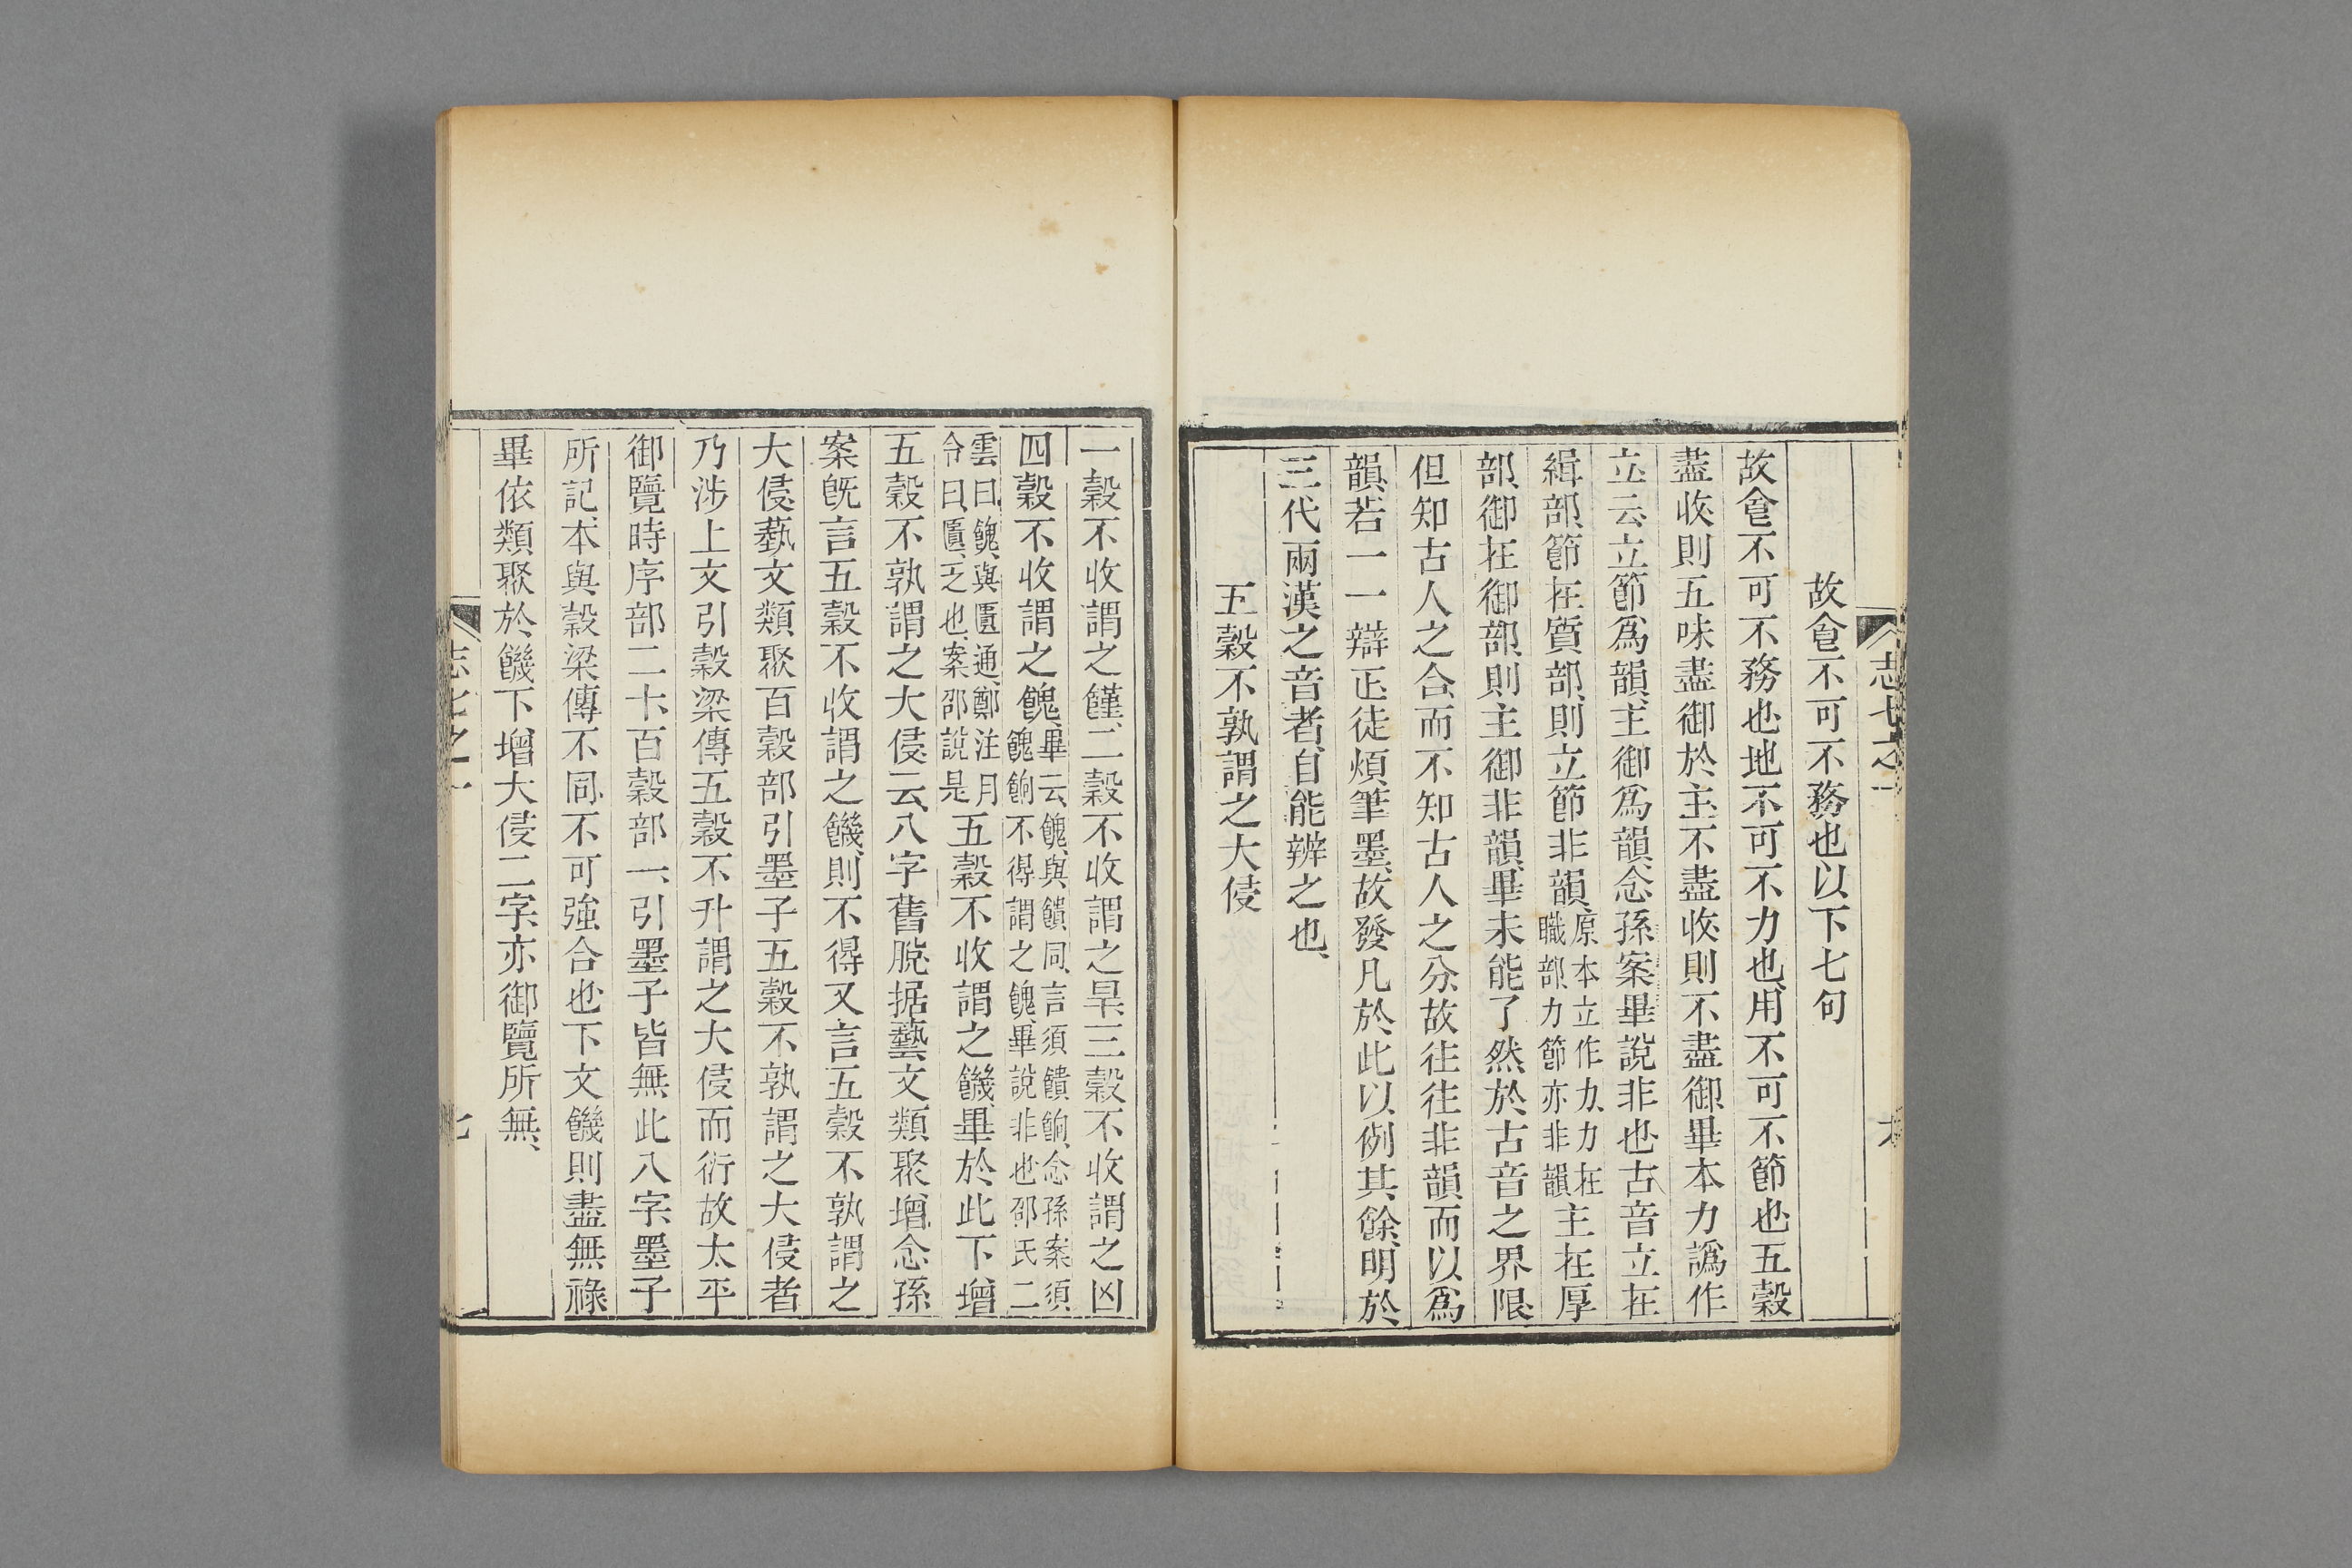 志七之一
故食不可不務也以下七句
故食不可不務也地不可不力也用不可不節也五穀
盡收則五味盡御於主不盡收則不盡御畢本力譌作
立云立節爲韻主御爲韻念孫案畢說非也古音立在
緝部節在質部則立節非韻原本立作力力在職部力節亦非韻主在厚
部御在御部則主御非韻畢未能了然於古音之界限
但知古人之合而不知古人之分故往往非韻而以爲
韻若一一辯正徒煩筆墨故發凡於此以例其餘明於
三代兩漢之音者自能辨之也
五穀不孰謂之大侵
一穀不收謂之饉二穀不收謂之旱三穀不收謂之凶
四穀不收謂之餽畢云餽與饋同言須饋餉念孫案須餽餉不得謂之餽畢說非也邵氏二
雲曰餽與匱通鄭注月令曰匱乏也案邵說是五穀不收謂之饑畢於此下增
五穀不孰謂之大侵云八字舊脫据藝文類聚增念孫
案旣言五穀不收謂之饑則不得又言五穀不孰謂之
大侵藝文類聚百穀部引墨子五穀不孰謂之大侵者
乃涉上文引穀梁傳五穀不升謂之大侵而衍故太平
御覽時序部二十百穀部一引墨子皆無此八字墨子
所記本與穀梁傳不同不可強合也下文饑則盡無祿
畢依類聚於饑下增大侵二字亦御覽所無
志七之一
七